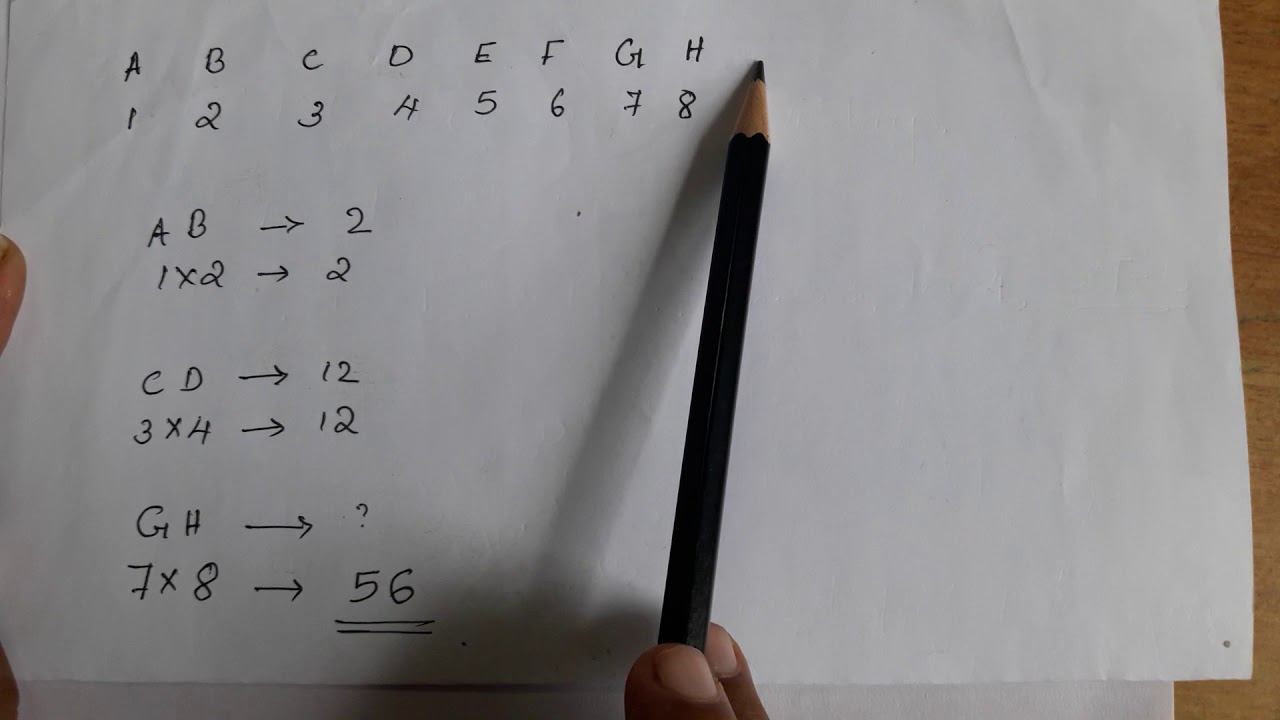 A B C D E F G H
1 2 3 4 5 6 7 8
A B → 2
1×2 → 2
C D → 12
3×4 → 12
G H → ?
7×8 → 56